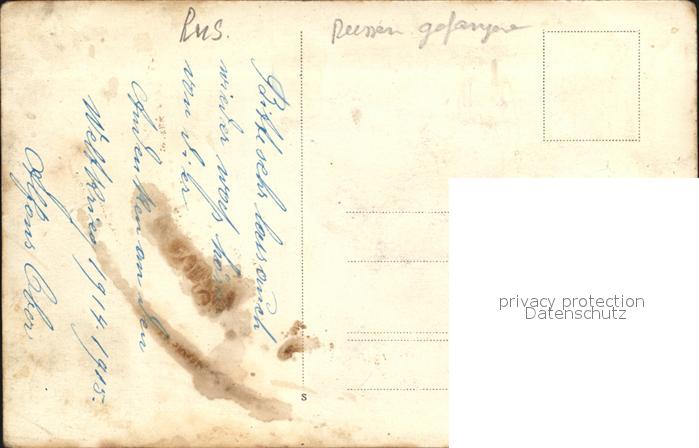 Rus.
Reussen gefangene
Bitte sehr las auch
wieder was hören
von dier
Andenken an den
Weltkrieg 1914.1915.
Alfons
S
privacy protection
Datenschutz